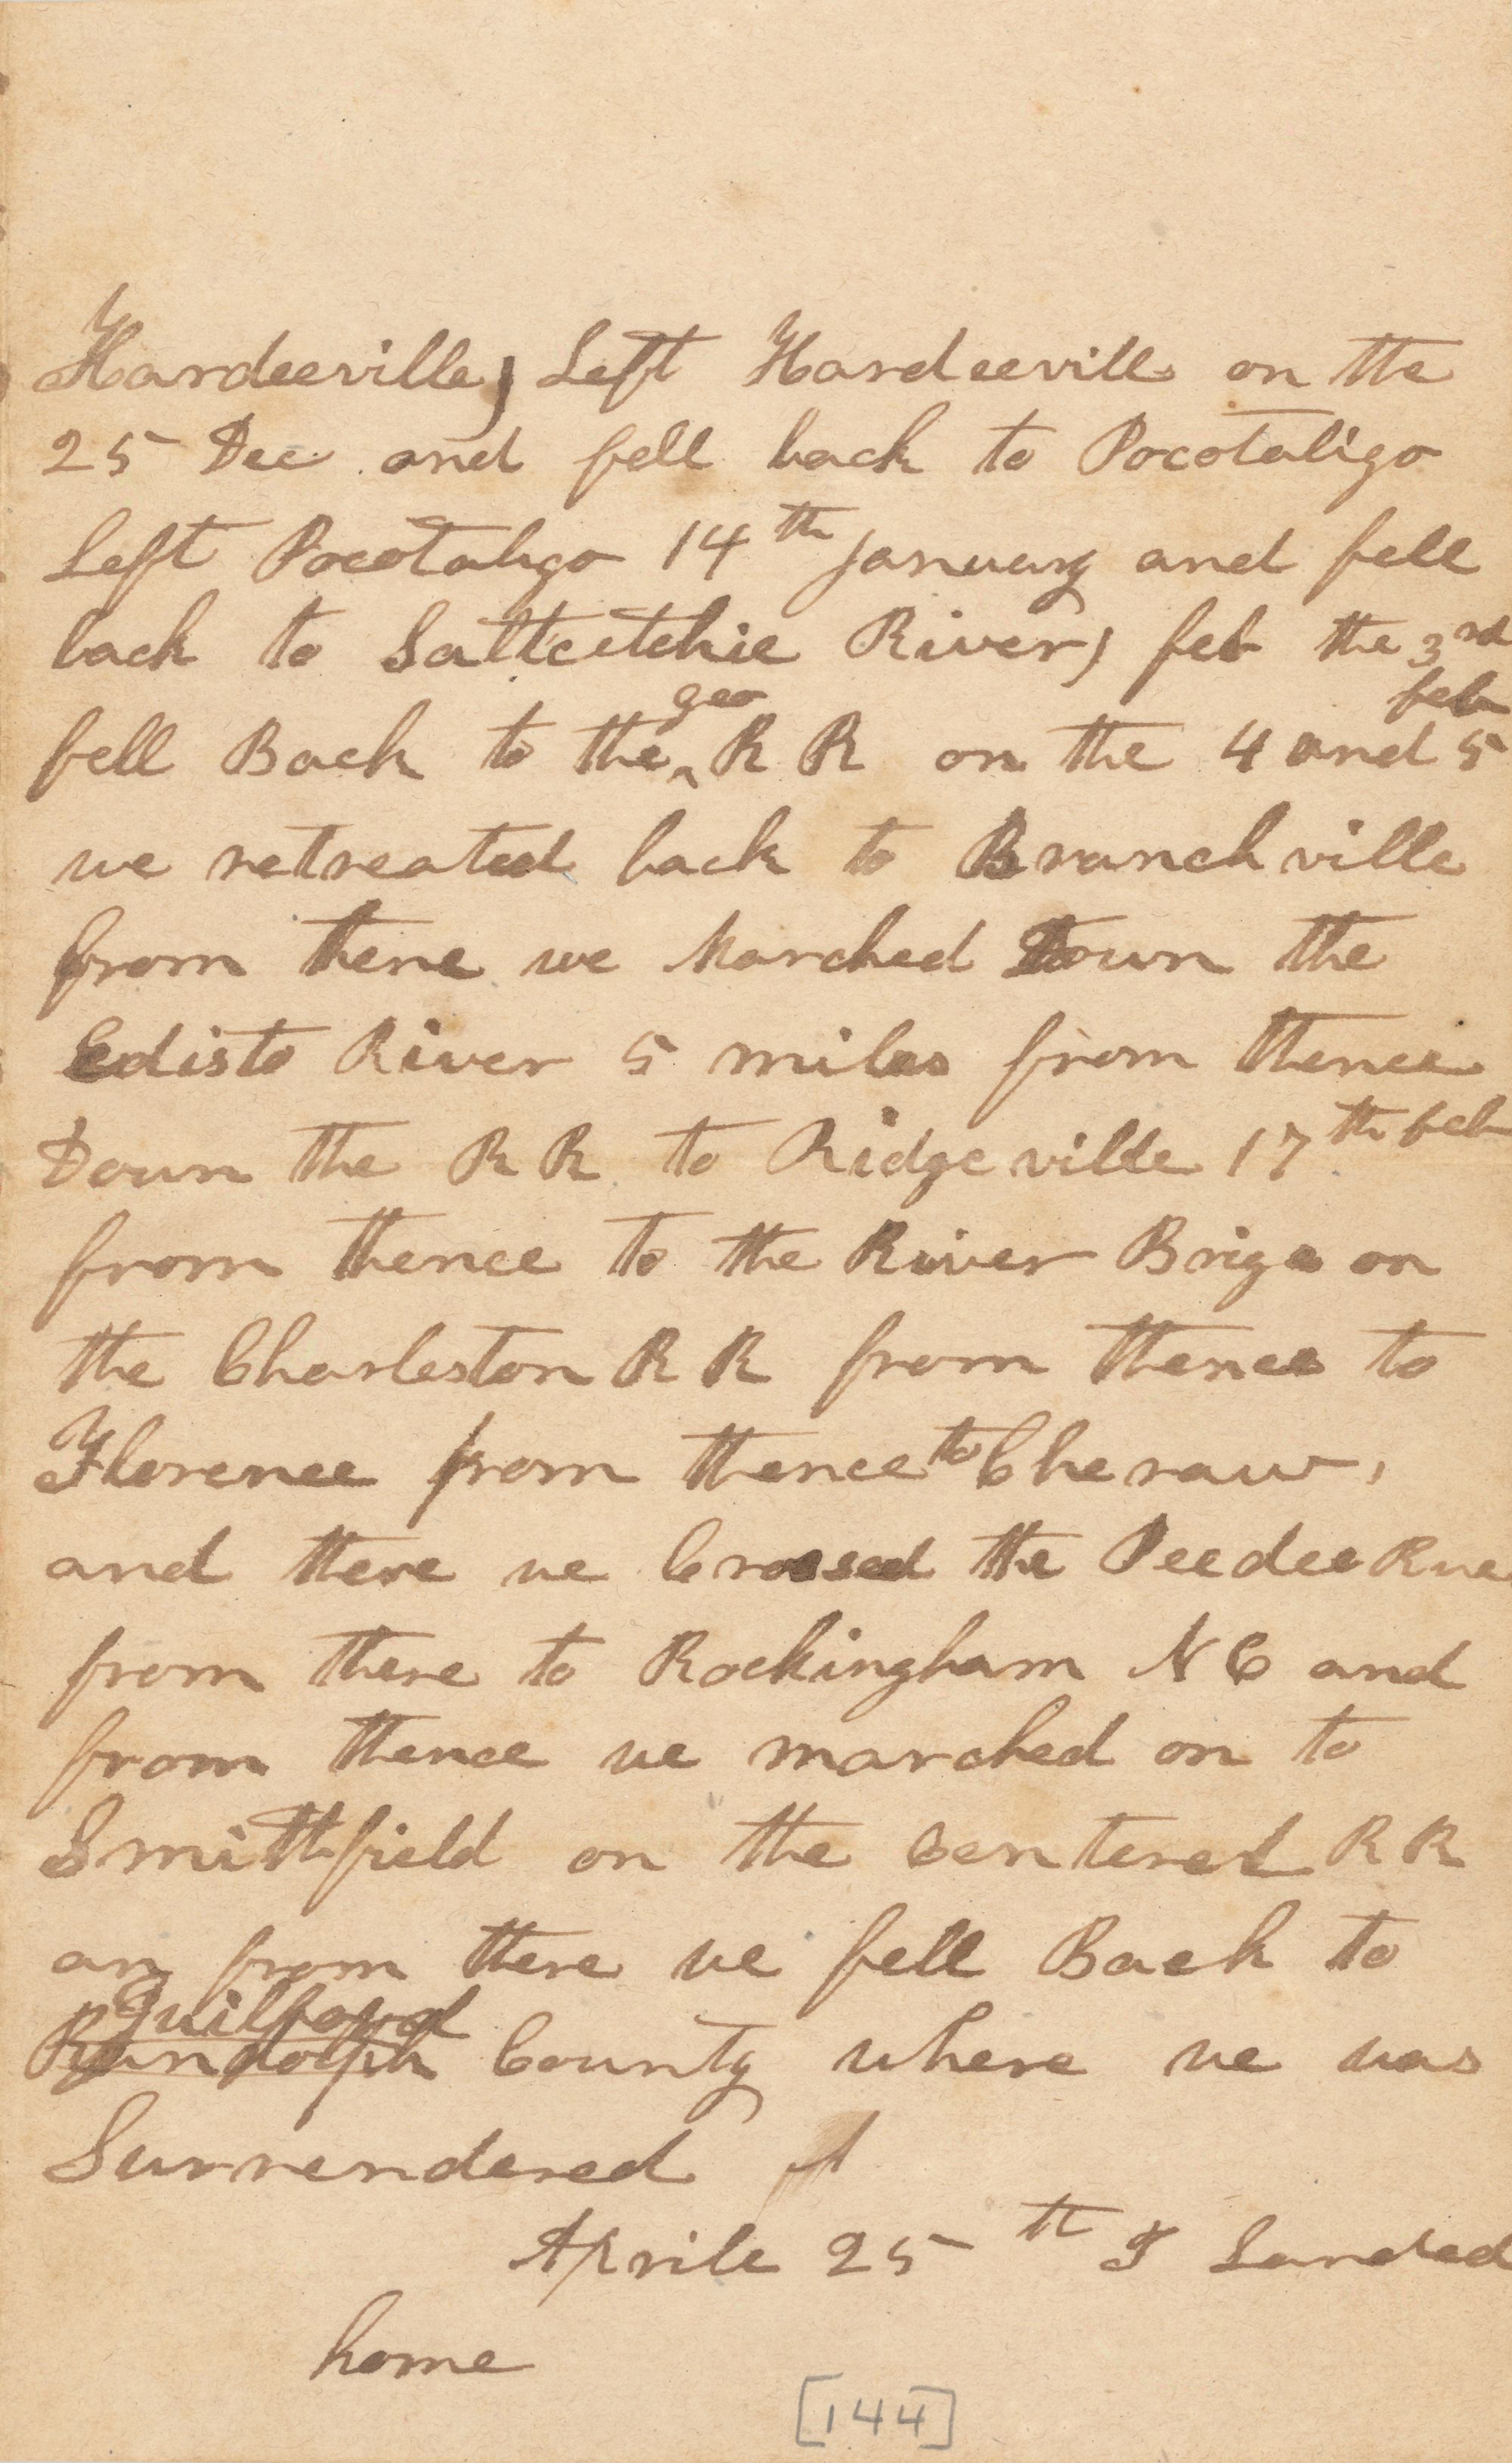 Hardeeville, Left Hardeeville on the
25 Dec and fell back to Pocotaligo
Left Pocotaligo 14th January and fell
back to Saltcetchie River, feb the 3rd
fell Back to the geo R R on the 4 and feb 5
we retreated back to Branchville
from there we Marched Down the
Edisto River 5 miles from thence
Down the R R to Ridgeville 17th feb
from thence to the River Brige on
the Charleston R R from thence to
Florence from thence to Cheraw,
and there we Crossed the Peedee Rive
from there to Rockingham N C and
from thence we marched on to
Smithfield on the Centerel R R
an from there we fell Back to
Guilford
Randolph County where we was
Surrendered
Aprile 25th I Landed
home
[144]